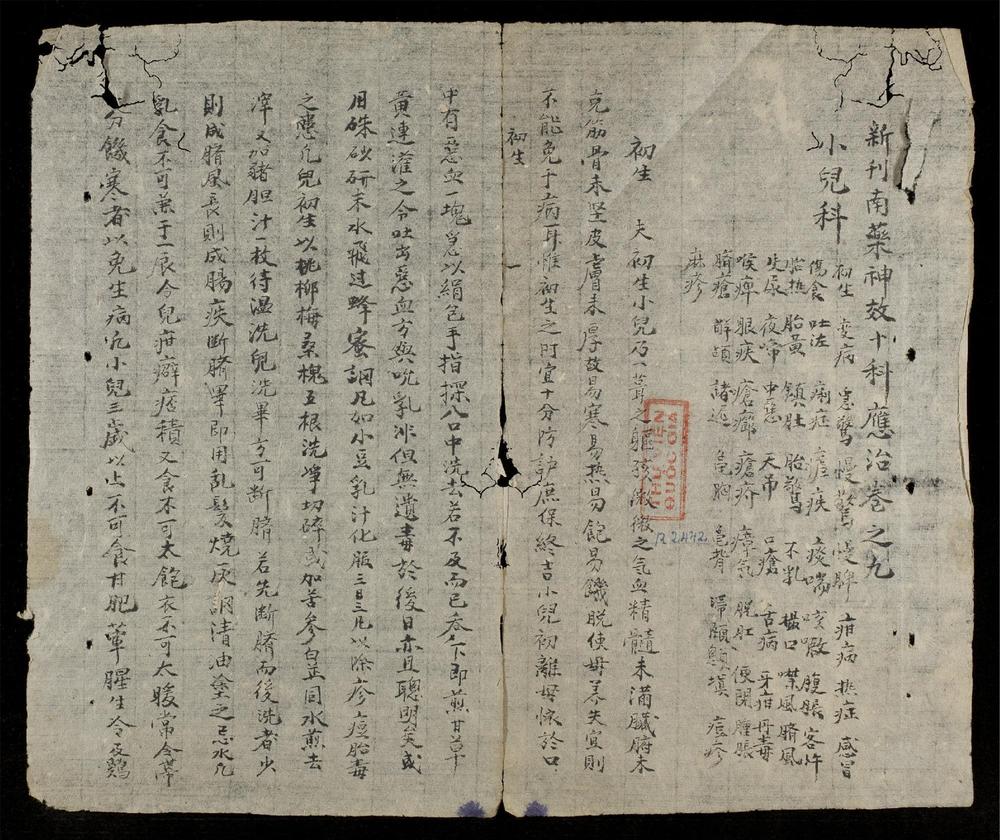 新刊南藥神效十科應治卷之九
小兒科
初生 變病 急驚 慢驚 慢脾 疳病 热症 感冒
傷食 吐泻 痢症 瘧疾 痰喘 咳嗽 腹脹 客忤
胎热 胎黄 鎮肚 胎驚 不乳 撮口 噤風 臍風
失尿 夜啼 中惡 天吊 口瘡 舌病 牙疳 丹毒
喉痺 眼疾 瘡癤 瘡疥 瘴氣 脱肛 便閉 腫脹
臍瘡 解顱 諸遲 龜胸 龜背 滯頤 顖填 痘疹
麻疹
初生 夫初生小兒乃一茸之軀孩微微之氣血精髓未滿臟腑未
克筋骨未堅皮膚未厚故易寒易热易飽易饑脱使毋养失宜則
不能免于病耳惟初生之际宜十分防护庶保終吉小兒初離母懷於口
初生 一
中有惡血一塊急以絹包手指探入口中洗去若不及而已吞下即煎甘草
黄連灌之令吐出惡血方與吮乳非但無遺毒於後日亦且聰明矣或
用硃砂研末水飛过蜂蜜調凡如小豆乳汁化服三日三凡以除疹痘胎毒
之患凡兒初生以桃柳梅桑槐五根洗净切碎或加苦参白芷同水煎去
滓又加豬胆汁一枚待温洗兒洗畢方可断臍若先断臍而後洗者少
則成臍風長則成腸疾断臍畢即用乱髮燒灰調清油塗之忌水凡
乳食不可兼于一辰令兒疳癖痞積又食不可太飽衣不可太暖常令帶
分饑寒者以免生病凡小兒三歲以上不可食甘肥葷腥生冷及鷄
THU VIEN
QUOC GIA
R.2472